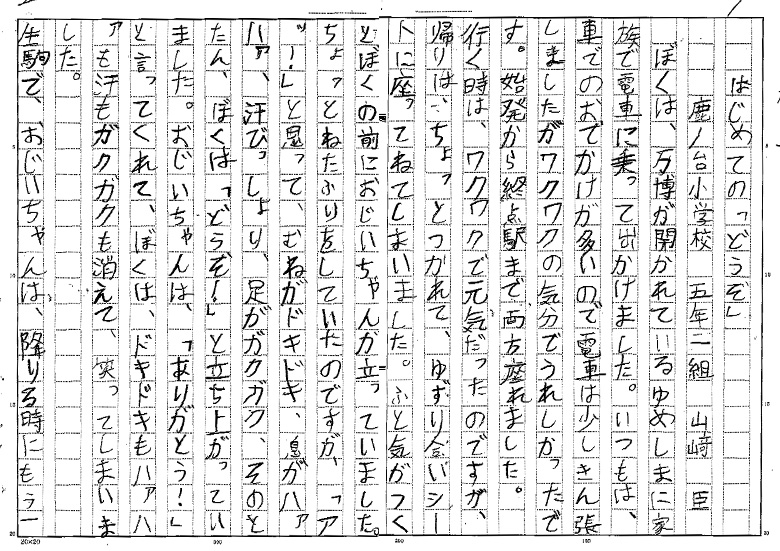 はじめての「どうぞ」
鹿ノ台小学校　五年二組　山﨑　臣
ぼくは、万博が開かれているゆめしまに家
族で電車に乗って出かけました。いつもは、
車でのおでかけが多いので電車は少しきん張
しましたがワクワクの気分でうれしかったで
す。始発から終点駅まで、両方座れました。
行く時は、ワクワクで元気だったのですが、
帰りは、ちょっとつかれて、ゆずり合いシー
トに座ってねてしまいました。ふと気がつく
とぼくの前におじいちゃんが立っていました。
ちょっとねたふりをしていたのですが、「ア
ッー!」と思って、むねがドキドキ、息がハァ
ハァ、汗びっしょり、足がガクガク、そのと
たん、ぼくは「どうぞ!」と立ち上がってい
ました。おじいちゃんは、「ありがとう!」
と言ってくれて、ぼくは、ドキドキもハァハ
ァも汗もガクガクも消えて、笑ってしまいま
した。
生駒で、おじいちゃんは、降りる時にもう一
20×20